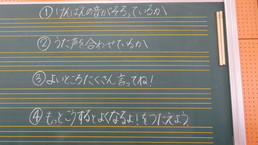 ①けんばんの音がそろっているか
②うた声を合わせているか
③よいところたくさん言ってね!
④もっとこうするとよくなるよ!をつたえよう